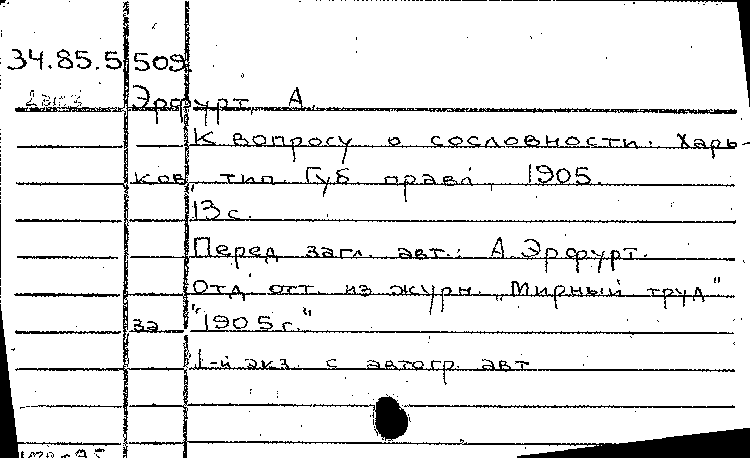 34.85.5 509.
2 экз Эрфурт, А.
К вопросу о сословности. Харь-
ков, тип. Губ правл, 1905.
13 с.
Перед загл. авт.: А. Эрфурт.
Отд. отт. из журн. „Мирный труд"
за "1905 г."
1-й экз. с автогр. авт